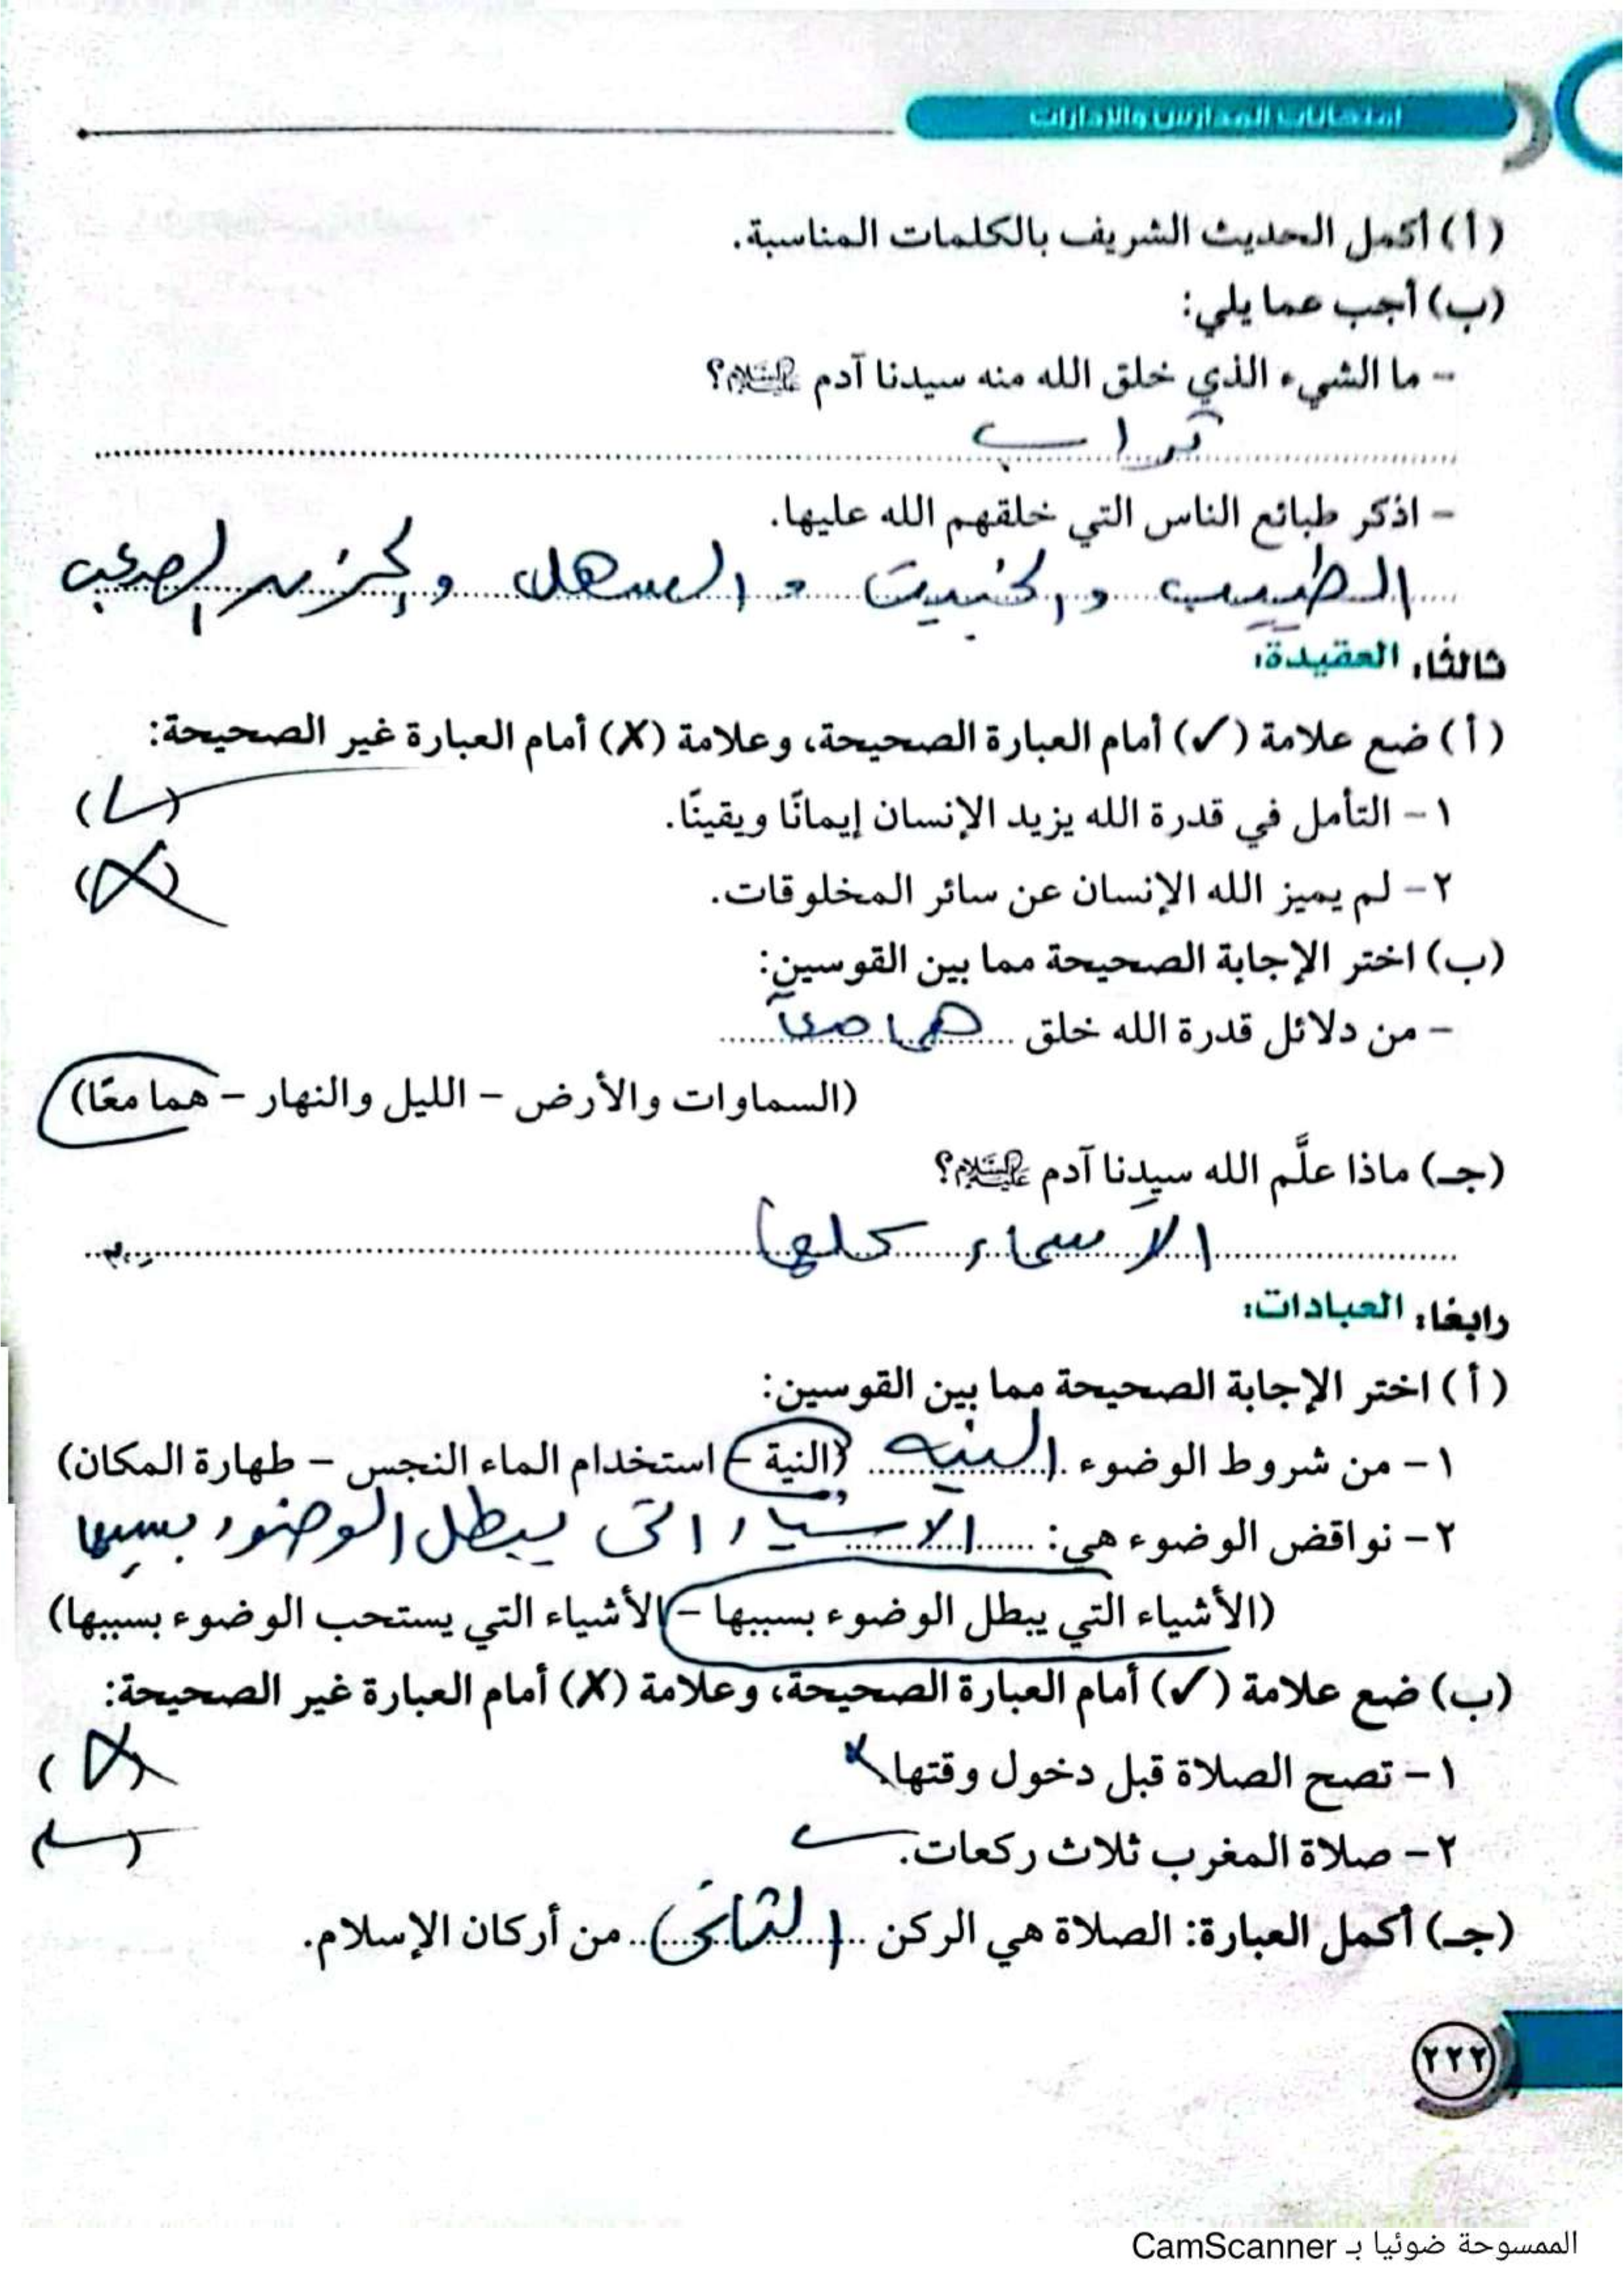 امتحانات المدارس والإدارات
(أ) أكمل الحديث الشريف بالكلمات المناسبة.
(ب) أجب عما يلي:
- ما الشيء الذي خلق الله منه سيدنا آدم عليه السلام؟
تراب
- اذكر طبائع الناس التي خلقهم الله عليها.
الطيب والخبيث و السهل و الحزن الصعب
ثالثًا: العقيدة:
(أ) ضع علامة (✓) أمام العبارة الصحيحة، وعلامة (X) أمام العبارة غير الصحيحة:
١- التأمل في قدرة الله يزيد الإنسان إيمانًا ويقينًا. (✓)
٢- لم يميز الله الإنسان عن سائر المخلوقات. (X)
(ب) اختر الإجابة الصحيحة مما بين القوسين:
- من دلائل قدرة الله خلق هما معًا
(السماوات والأرض - الليل والنهار - هما معًا)
(جـ) ماذا علَّم الله سيدنا آدم عليه السلام؟
الأسماء كلها
رابعًا: العبادات:
(أ) اختر الإجابة الصحيحة مما بين القوسين:
١- من شروط الوضوء النيه (النية - استخدام الماء النجس - طهارة المكان)
٢- نواقض الوضوء هي: الاشياء التى يبطل الوضوء بسببها
(الأشياء التي يبطل الوضوء بسببها - الأشياء التي يستحب الوضوء بسببها)
(ب) ضع علامة (✓) أمام العبارة الصحيحة، وعلامة (X) أمام العبارة غير الصحيحة:
١- تصح الصلاة قبل دخول وقتها. X (X)
٢- صلاة المغرب ثلاث ركعات. ✓ (✓)
(جـ) أكمل العبارة: الصلاة هي الركن (الثانى) من أركان الإسلام.
٢٢٢
الممسوحة ضوئيا بـ CamScanner